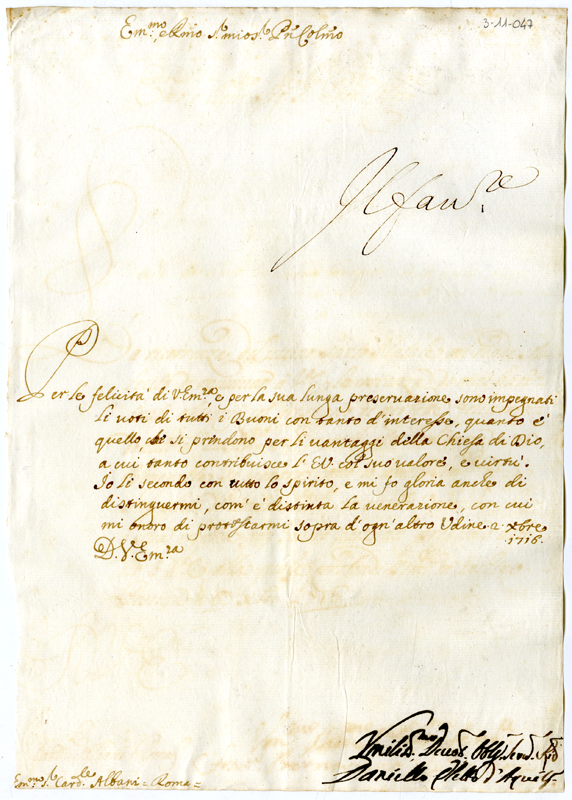 3-11-047
Em.mo e Rmo S.r mio S.r Pñ Colmo
Per le felicità di V. Em.za e per la sua lunga preservazione sono impegnati
li voti di tutti i Buoni con tanto d'interesse, quanto è
quello, che si prendono per li vantaggi della Chiesa di Dio,
a cui tanto contribuisce l'E.V. col suo valore, e virtù.
Io li secondo con tutto lo spirito, e mi fo gloria anche di
distinguermi, com'è distinta la venerazione, con cui
mi onoro di protestarmi sopra d'ogn'altro Udine 2 Xbre
1716.
D.V. Em.za
Umiliss.mo Devot. Obblig. Serv.
Daniello d'Aquil.
Em.mo S.r Card.le Albani = Roma =